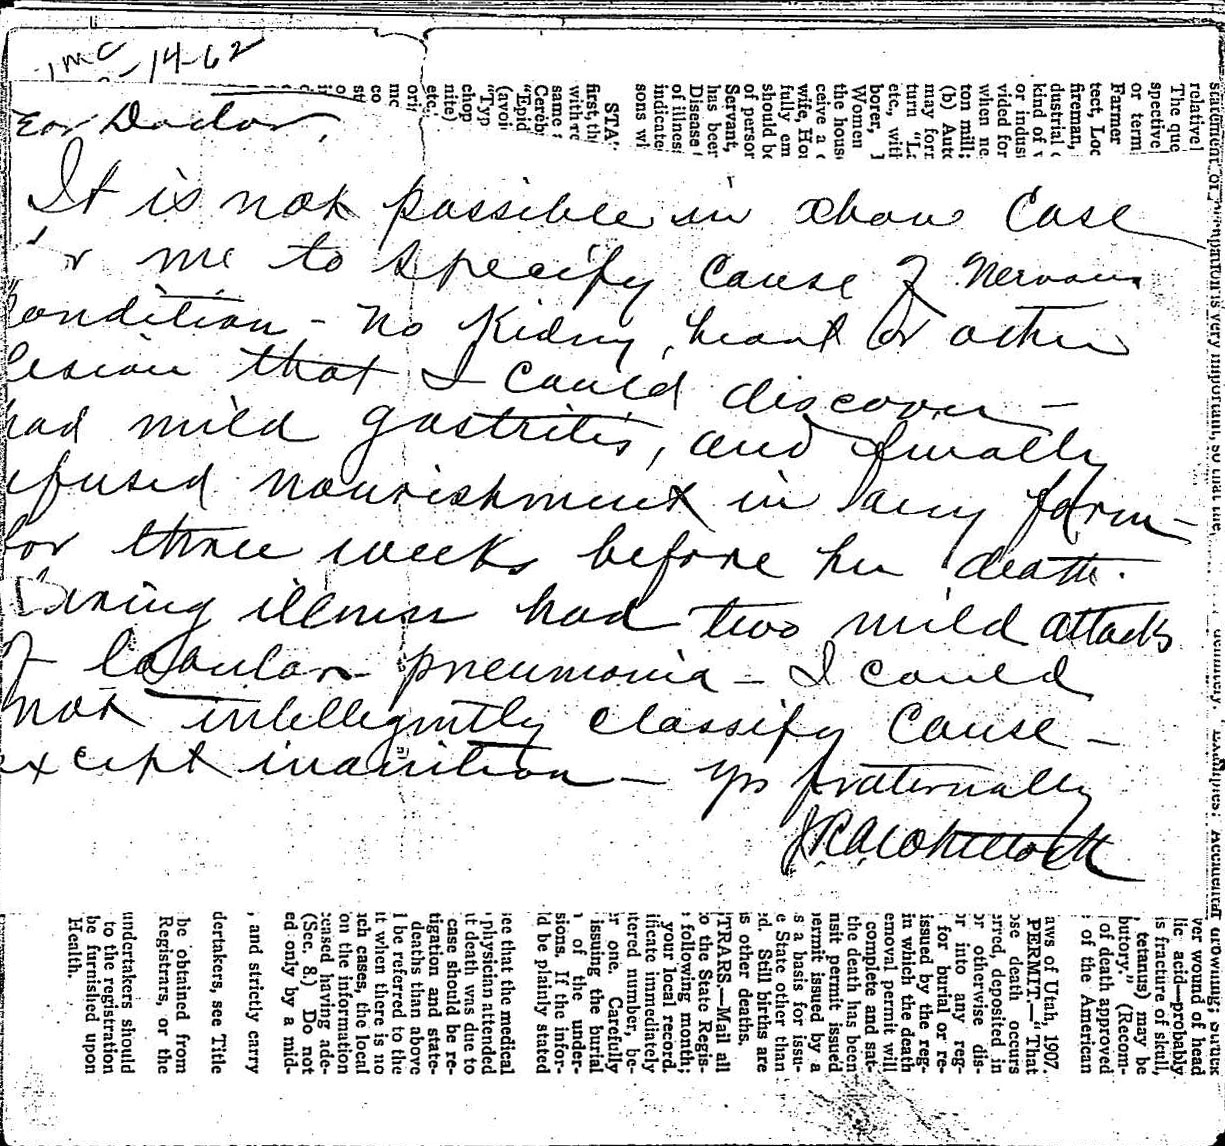 mc
-14-62
ear Doctor,
It is not possible in above Case
r me to specify cause of nervous
ondition - no Kidney, heart or other
lesion that I could discover -
had mild gastritis, and finally
efused nourishment in any form -
for three weeks before her death.
During illness had two mild attacks
of lobular pneumonia - I could
not intelligently classify Cause -
except inanition - Yrs fraternally
STA
first, th
with re
same
Cereb
"Epid
(avoi
"Typ
chop
nite)
etc.
ori
mc
co
st
statement of occupation is very important, so that the
relative
The que
spective
or term
Farmer
tect, Loc
fireman,
dustrial
kind of
or indus
vided for
when ne
ton mill;
(b) Auto
may for
turn "La
etc., with
borer,
Women
the hous
ceive a
wife, Ho
fully em
should be
of person
Servant,
has been
Disease
of illnes
indicate
sons w
drowning; struck
ver wound of head
lic acid—probably
is fracture of skull,
, tetanus) may be
butory." (Recom-
of death approved
of the American
aws of Utah, 1907.
PERMIT.—"That
ose death occurs
erred, deposited in
or otherwise dis-
or into any reg-
for burial or re-
issued by the reg-
in which the death
emoval permit will
complete and sat-
the death has been
nsit permit issued
ermit issued by a
s a basis for issu-
e State other than
d. Still births are
s other deaths.
TRARS.—Mail all
to the State Regis-
following month;
your local record.
ificate immediately
tered number, be-
r one. Carefully
issuing the burial
of the under-
sions. If the infor-
ld be plainly stated
ee that the medical
physician attended
t death was due to
case should be re-
tigation and state-
deaths than above
l be referred to the
t when there is no
ch cases, the local
on the information
ceased having ade-
(Sec. 8.) Do not
ed only by a mid-
, and strictly carry
dertakers, see Title
be obtained from
Registrars, or the
undertakers should
to the registration
be furnished upon
Health.